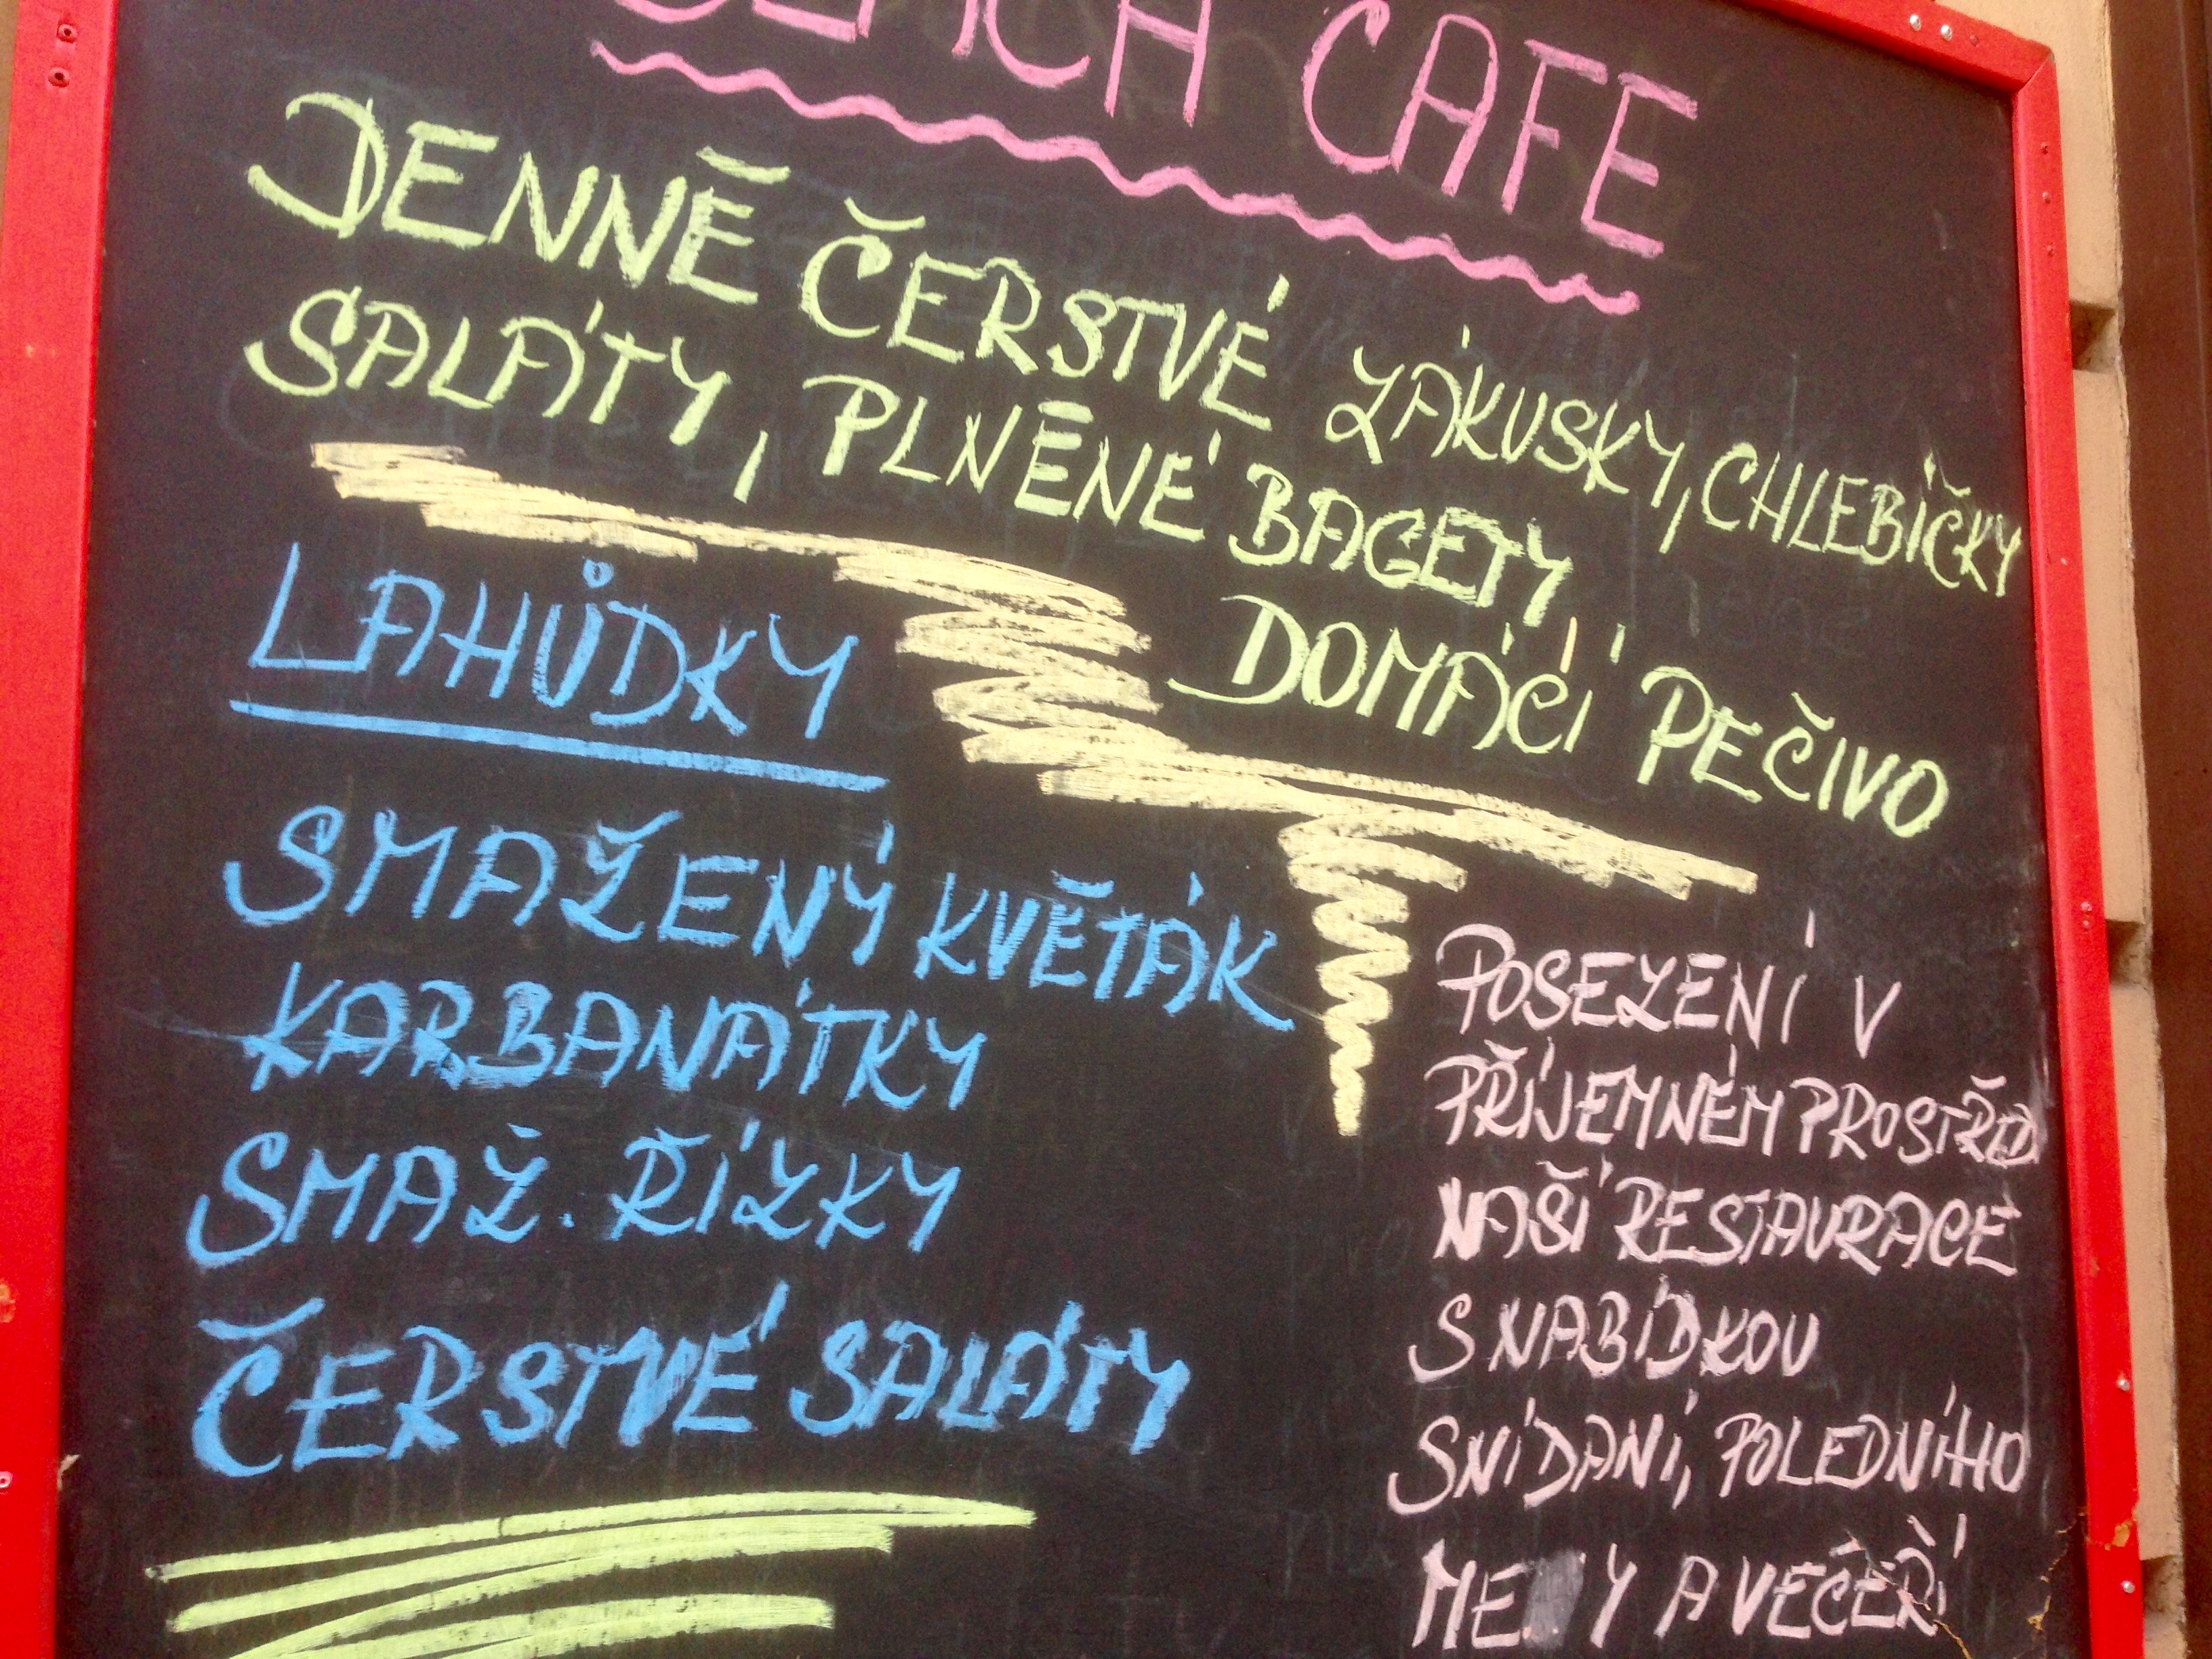 CAFE
DENNĚ ČERSTVÉ ZÁKUSKY, CHLEBÍČKY
SALÁTY, PLNĚNÉ BAGETY,
DOMÁCÍ PEČIVO
LAHŮDKY
SMAŽENÝ KVĚTÁK
KARBANÁTKY
SMAŽ. ŘÍZKY
ČERSTVÉ SALÁTY
POSEZENÍ V
PŘÍJEMNÉM PROSTŘED
NAŠÍ RESTAURACE
S NABÍDKOU
SNÍDANÍ, POLEDNÍHO
A VEČEŘÍ